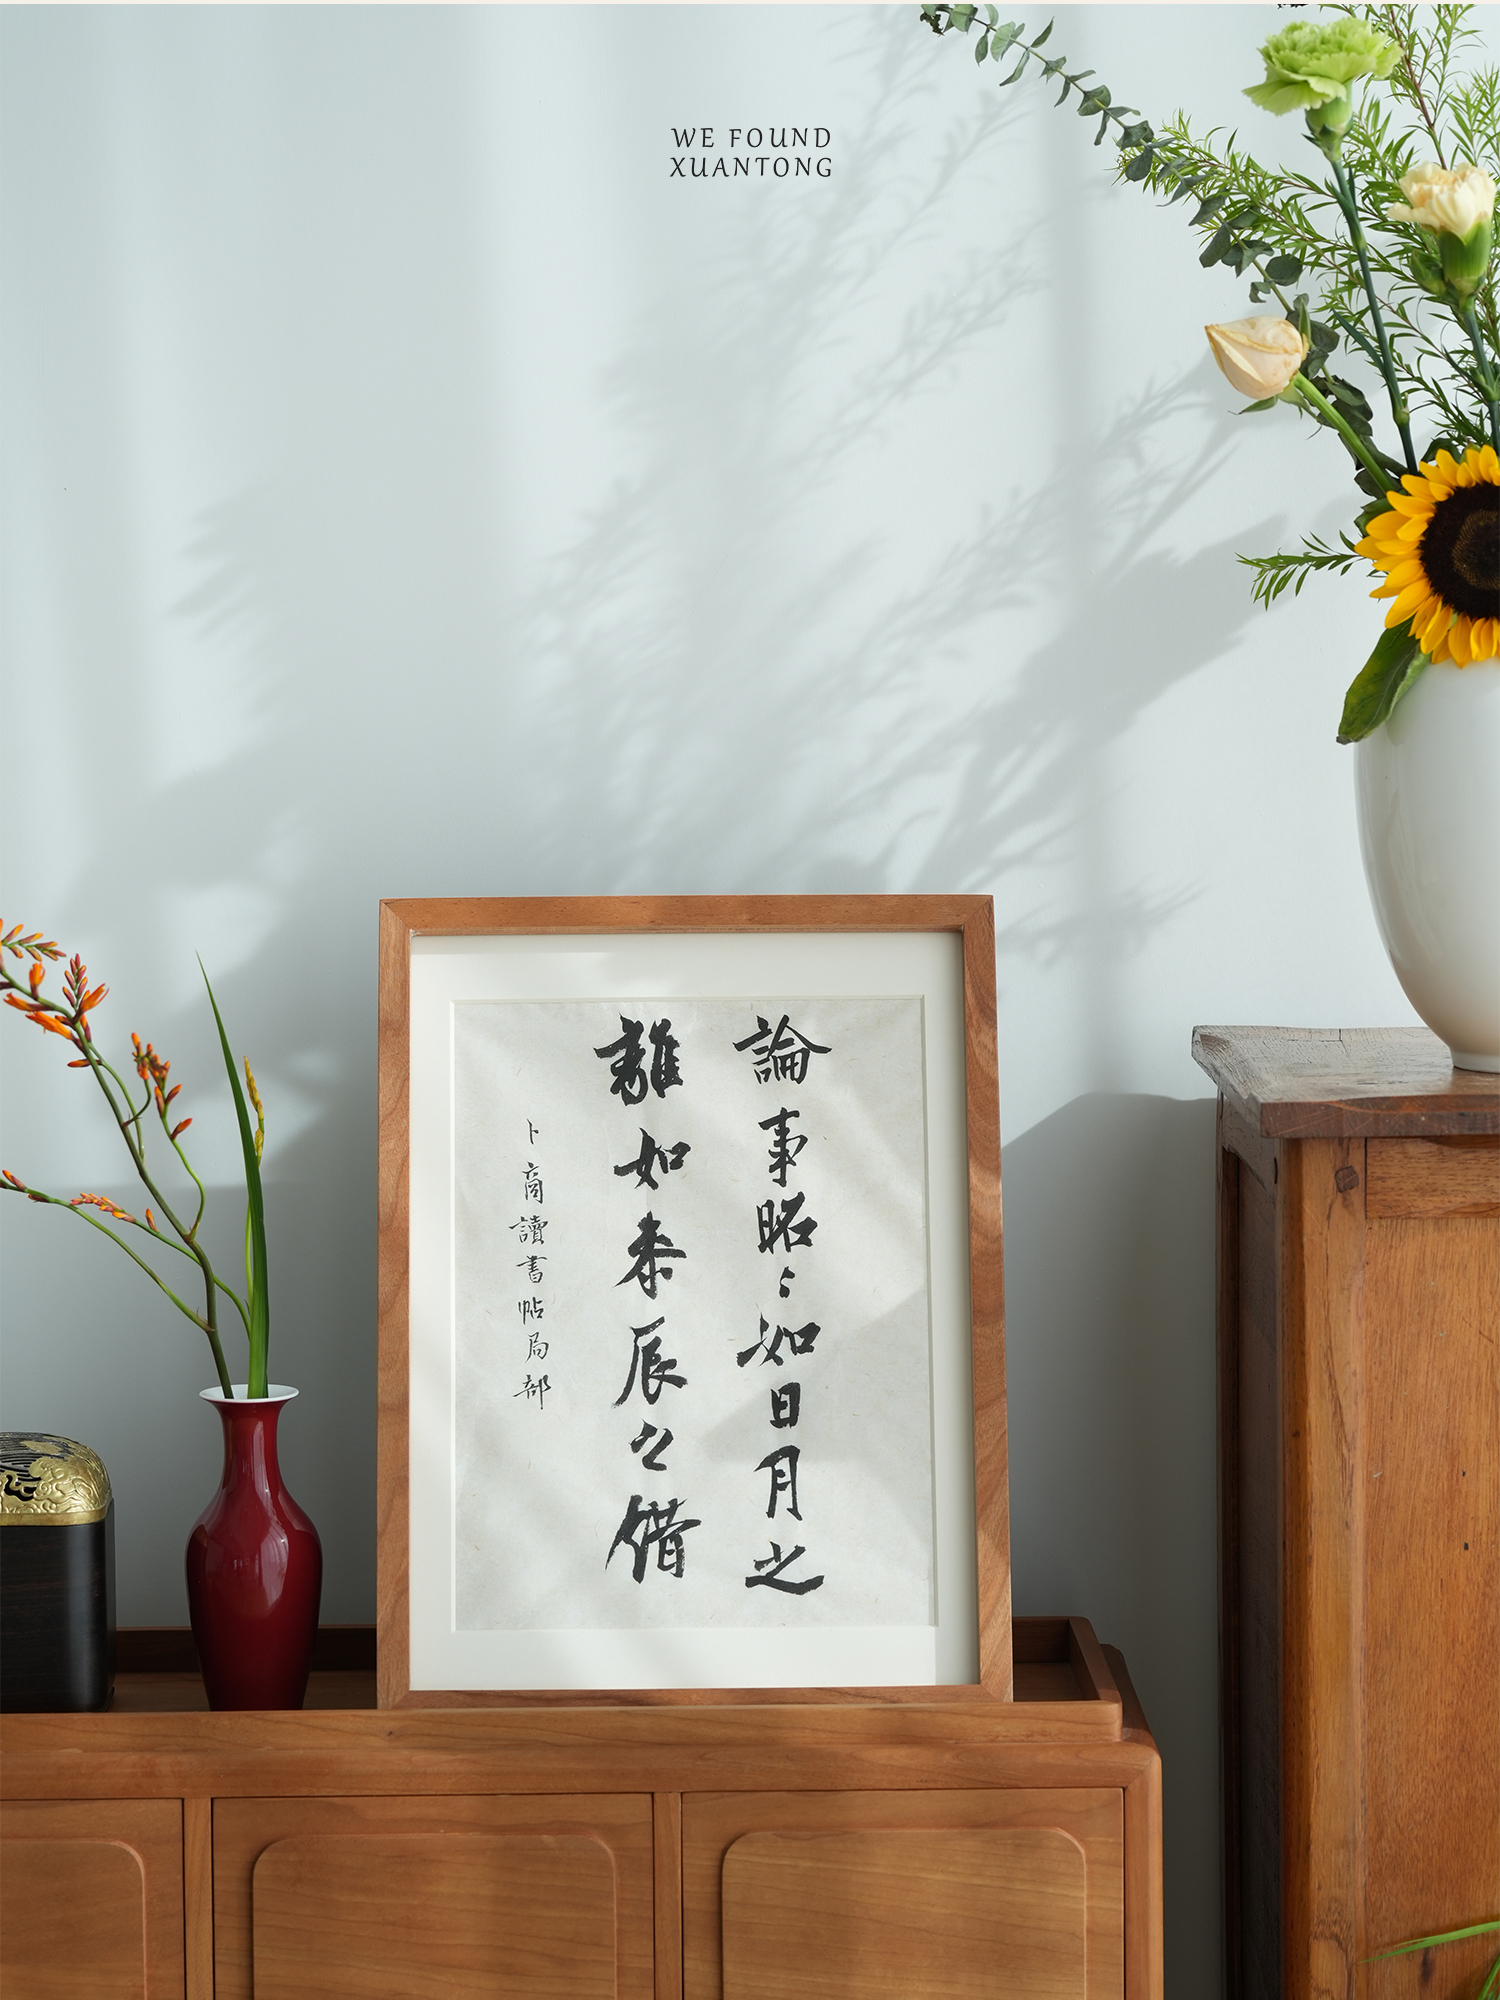 WE FOUND
XUANTONG
論事昭々如日月之
離如參辰之錯
卜商讀書帖局部